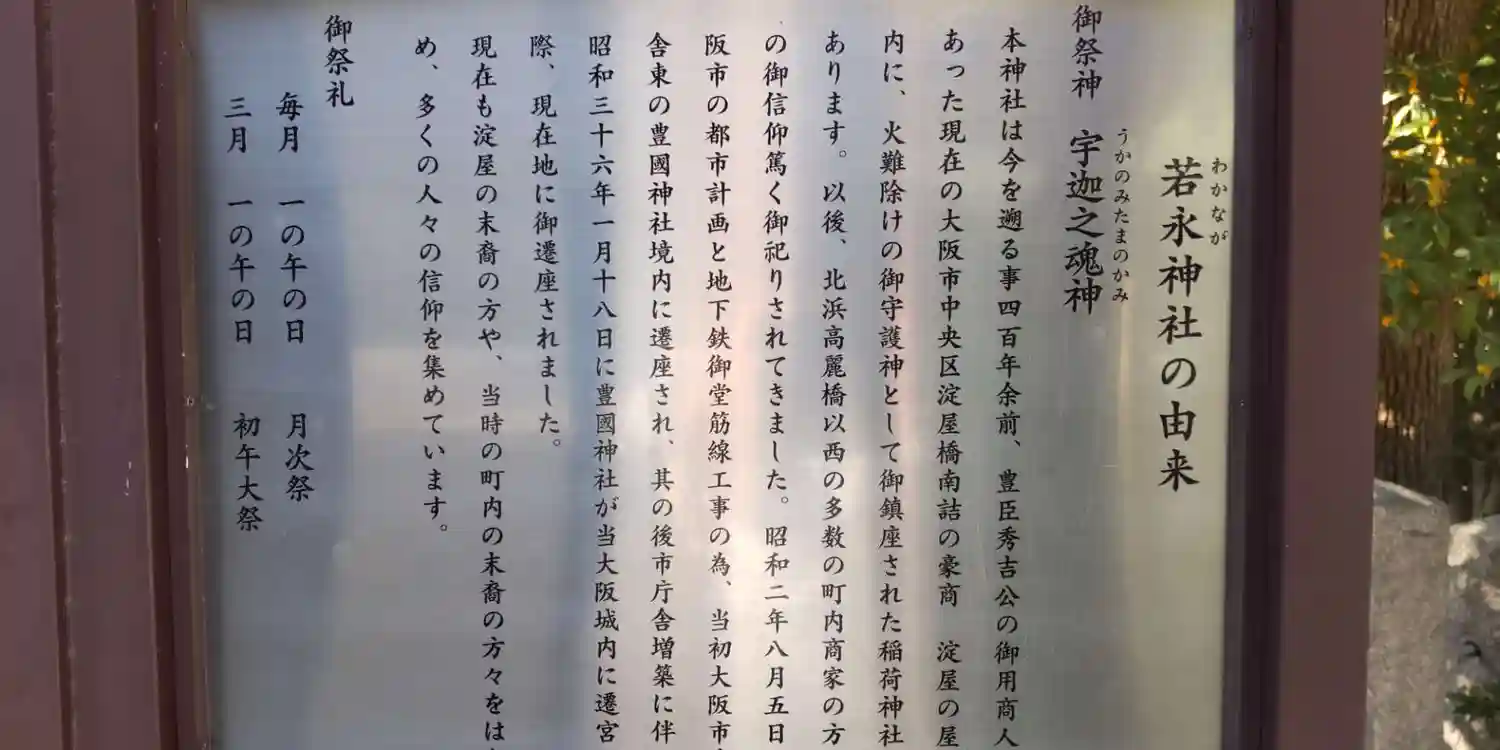 わかなが
若永神社の由来
うかのみたまのかみ
御祭神 宇迦之魂神
本神社は今を遡る事四百年余前、豊臣秀吉公の御用商人
あった現在の大阪市中央区淀屋橋南詰の豪商 淀屋の屋
内に、火難除けの御守護神として御鎮座された稲荷神社
あります。以後、北浜高麗橋以西の多数の町内商家の方
の御信仰篤く御祀りされてきました。昭和二年八月五日
阪市の都市計画と地下鉄御堂筋線工事の為、当初大阪市
舎東の豊國神社境内に遷座され、其の後市庁舎増築に伴
昭和三十六年一月十八日に豊國神社が当大阪城内に遷宮
際、現在地に御遷座されました。
現在も淀屋の末裔の方や、当時の町内の末裔の方々をは
め、多くの人々の信仰を集めています。
御祭礼
毎月 一の午の日 月次祭
三月 一の午の日 初午大祭